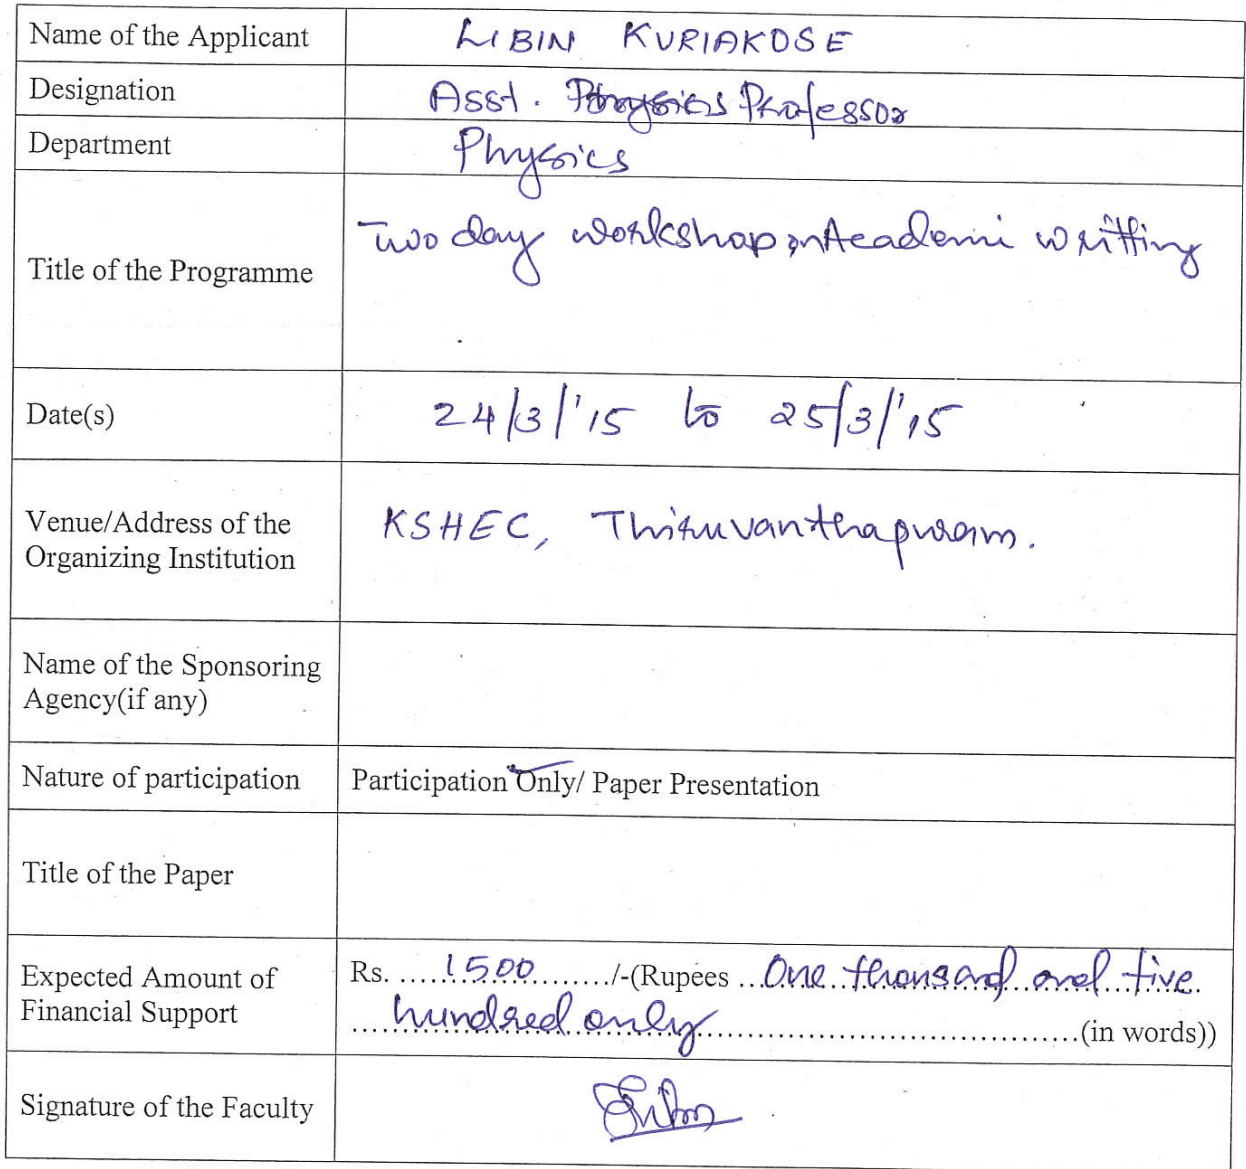 Name of the Applicant LIBIN KURIAKOSE
Designation Asst. Physics Professor
Department Physics
Title of the Programme Two day workshop on Academi writting
Date(s) 24/3/'15 to 25/3/'15
Venue/Address of the
Organizing Institution KSHEC, Thiruvanthapuram.
Name of the Sponsoring
Agency(if any)
Nature of participation Participation Only/ Paper Presentation
Title of the Paper
Expected Amount of
Financial Support
Rs. ....1500........./-(Rupees ...One thousand and five
hundred only.......................................(in words))
Signature of the Faculty